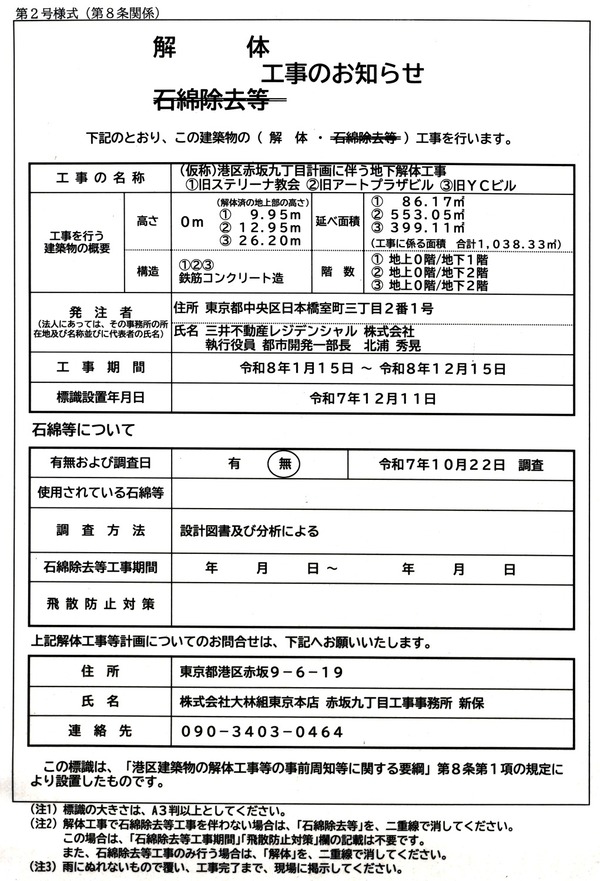 第２号様式（第８条関係）
解　　　体
工事のお知らせ
石綿除去等
下記のとおり、この建築物の（ 解　体 ・ 石綿除去等 ）工事を行います。
工 事 の 名 称
（仮称）港区赤坂九丁目計画に伴う地下解体工事
①旧ステリーナ教会 ②旧アートプラザビル ③旧ＹＣビル
工事を行う
建築物の概要
高さ
０ｍ
（解体済の地上部の高さ）
①　９.９５ｍ
② １２.９５ｍ
③ ２６.２０ｍ
延べ面積
①　８６.１７㎡
② ５５３.０５㎡
③ ３９９.１１㎡
（工事に係る面積　合計１,０３８.３３㎡）
構造
①②③
鉄筋コンクリート造
階　数
① 地上０階/地下１階
② 地上０階/地下２階
③ 地上０階/地下２階
発　注　者
（法人にあっては、その事務所の所
在地及び名称並びに代表者の氏名）
住所 東京都中央区日本橋室町三丁目２番１号
氏名 三井不動産レジデンシャル 株式会社
執行役員 都市開発一部長　北浦 秀晃
工　事　期　間
令和８年１月１５日 ～ 令和８年１２月１５日
標識設置年月日
令和７年１２月１１日
石綿等について
有無および調査日
有　　無
令和７年１０月２２日　調査
使用されている石綿等
調　査　方　法
設計図書及び分析による
石綿除去等工事期間
年　　月　　日 ～　　　年　　月　　日
飛 散 防 止 対 策
上記解体工事等計画についてのお問合せは、下記へお願いいたします。
住　所
東京都港区赤坂９－６－１９
氏　名
株式会社大林組東京本店 赤坂九丁目工事事務所 新保
連　絡　先
０９０－３４０３－０４６４
この標識は、「港区建築物の解体工事等の事前周知等に関する要綱」第８条第１項の規定に
より設置したものです。
（注１）標識の大きさは、Ａ３判以上としてください。
（注２）解体工事で石綿除去等工事を伴わない場合は、「石綿除去等」を、二重線で消してください。
この場合は、「石綿除去等工事期間」「飛散防止対策」欄の記載は不要です。
また、石綿除去等工事のみ行う場合は、「解体」を、二重線で消してください。
（注３）雨にぬれないもので覆い、工事完了まで、現場に掲示してください。